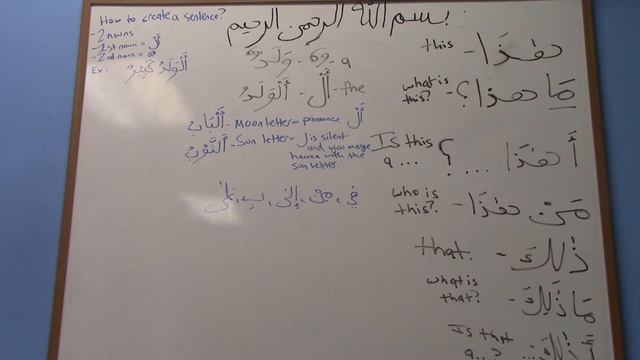 بسم الله الرحمن الرحيم
How to create a sentence?
- 2 nouns
- 1st noun = أَلْ
- 2nd noun =
Ex: أَلْوَلَدُ كَبِيْرٌ
a - وَلَدٌ
the - أَلْ - أَلْوَلَدُ
أَلْبَابُ - Moon letter - pronounce أَلْ
أَلثَّوْبُ - Sun letter - ل is silent
and you merge
hamza with the
sun letter.
فِي، مِنْ، إِلَى، بِ، عَلَى
هٰذَا - this
مَا هٰذَا؟ - what is this?
أَ هٰذَا ... ؟ Is this a ...
مَنْ هٰذَا - who is this?
ذٰلِكَ - that.
مَا ذٰلِكَ - what is that?
أَذٰلِكَ... Is that a..?